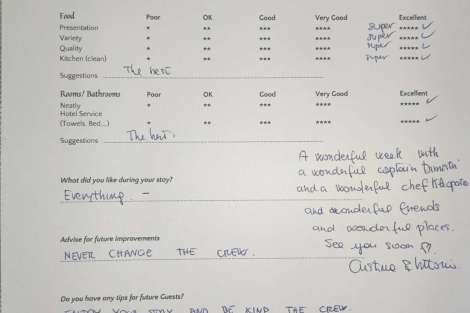 Food Poor OK Good Very Good Excellent
Presentation * ** *** **** super ***** ✓
Variety * ** *** **** super ***** ✓
Quality * ** *** **** super ***** ✓
Kitchen (clean) * ** *** **** super ***** ✓
Suggestions The best
Rooms/ Bathrooms Poor OK Good Very Good Excellent
Neatly * ** *** **** ***** ✓
Hotel Service
(Towels, Bed...) * ** *** **** ***** ✓
Suggestions The best.
What did you like during your stay?
Everything. -
A wonderful week with
a wonderful captain
and a wonderful chef
and wonderful friends
and wonderful places.
See you soon ♡
Advise for future improvements
NEVER CHANGE THE CREW.
Do you have any tips for future Guests?
ENJOY YOUR STAY AND BE KIND THE CREW